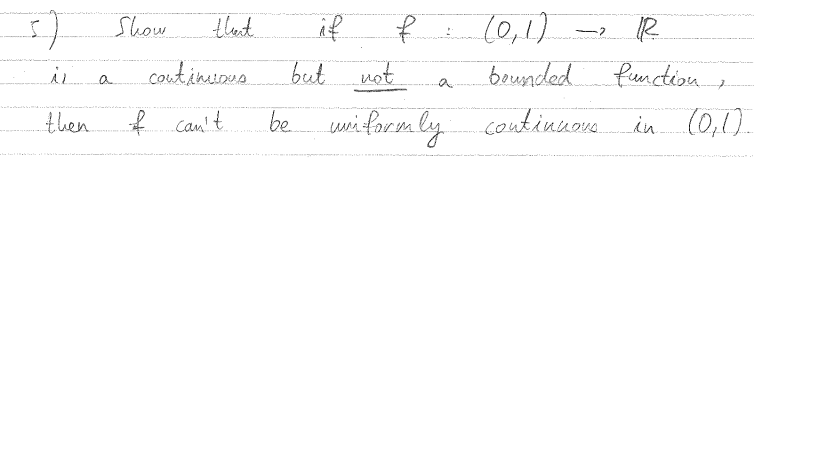 5) Show that if f : (0,1) → ℝ
is a continuous but not a bounded function,
then f can't be uniformly continuous in (0,1).